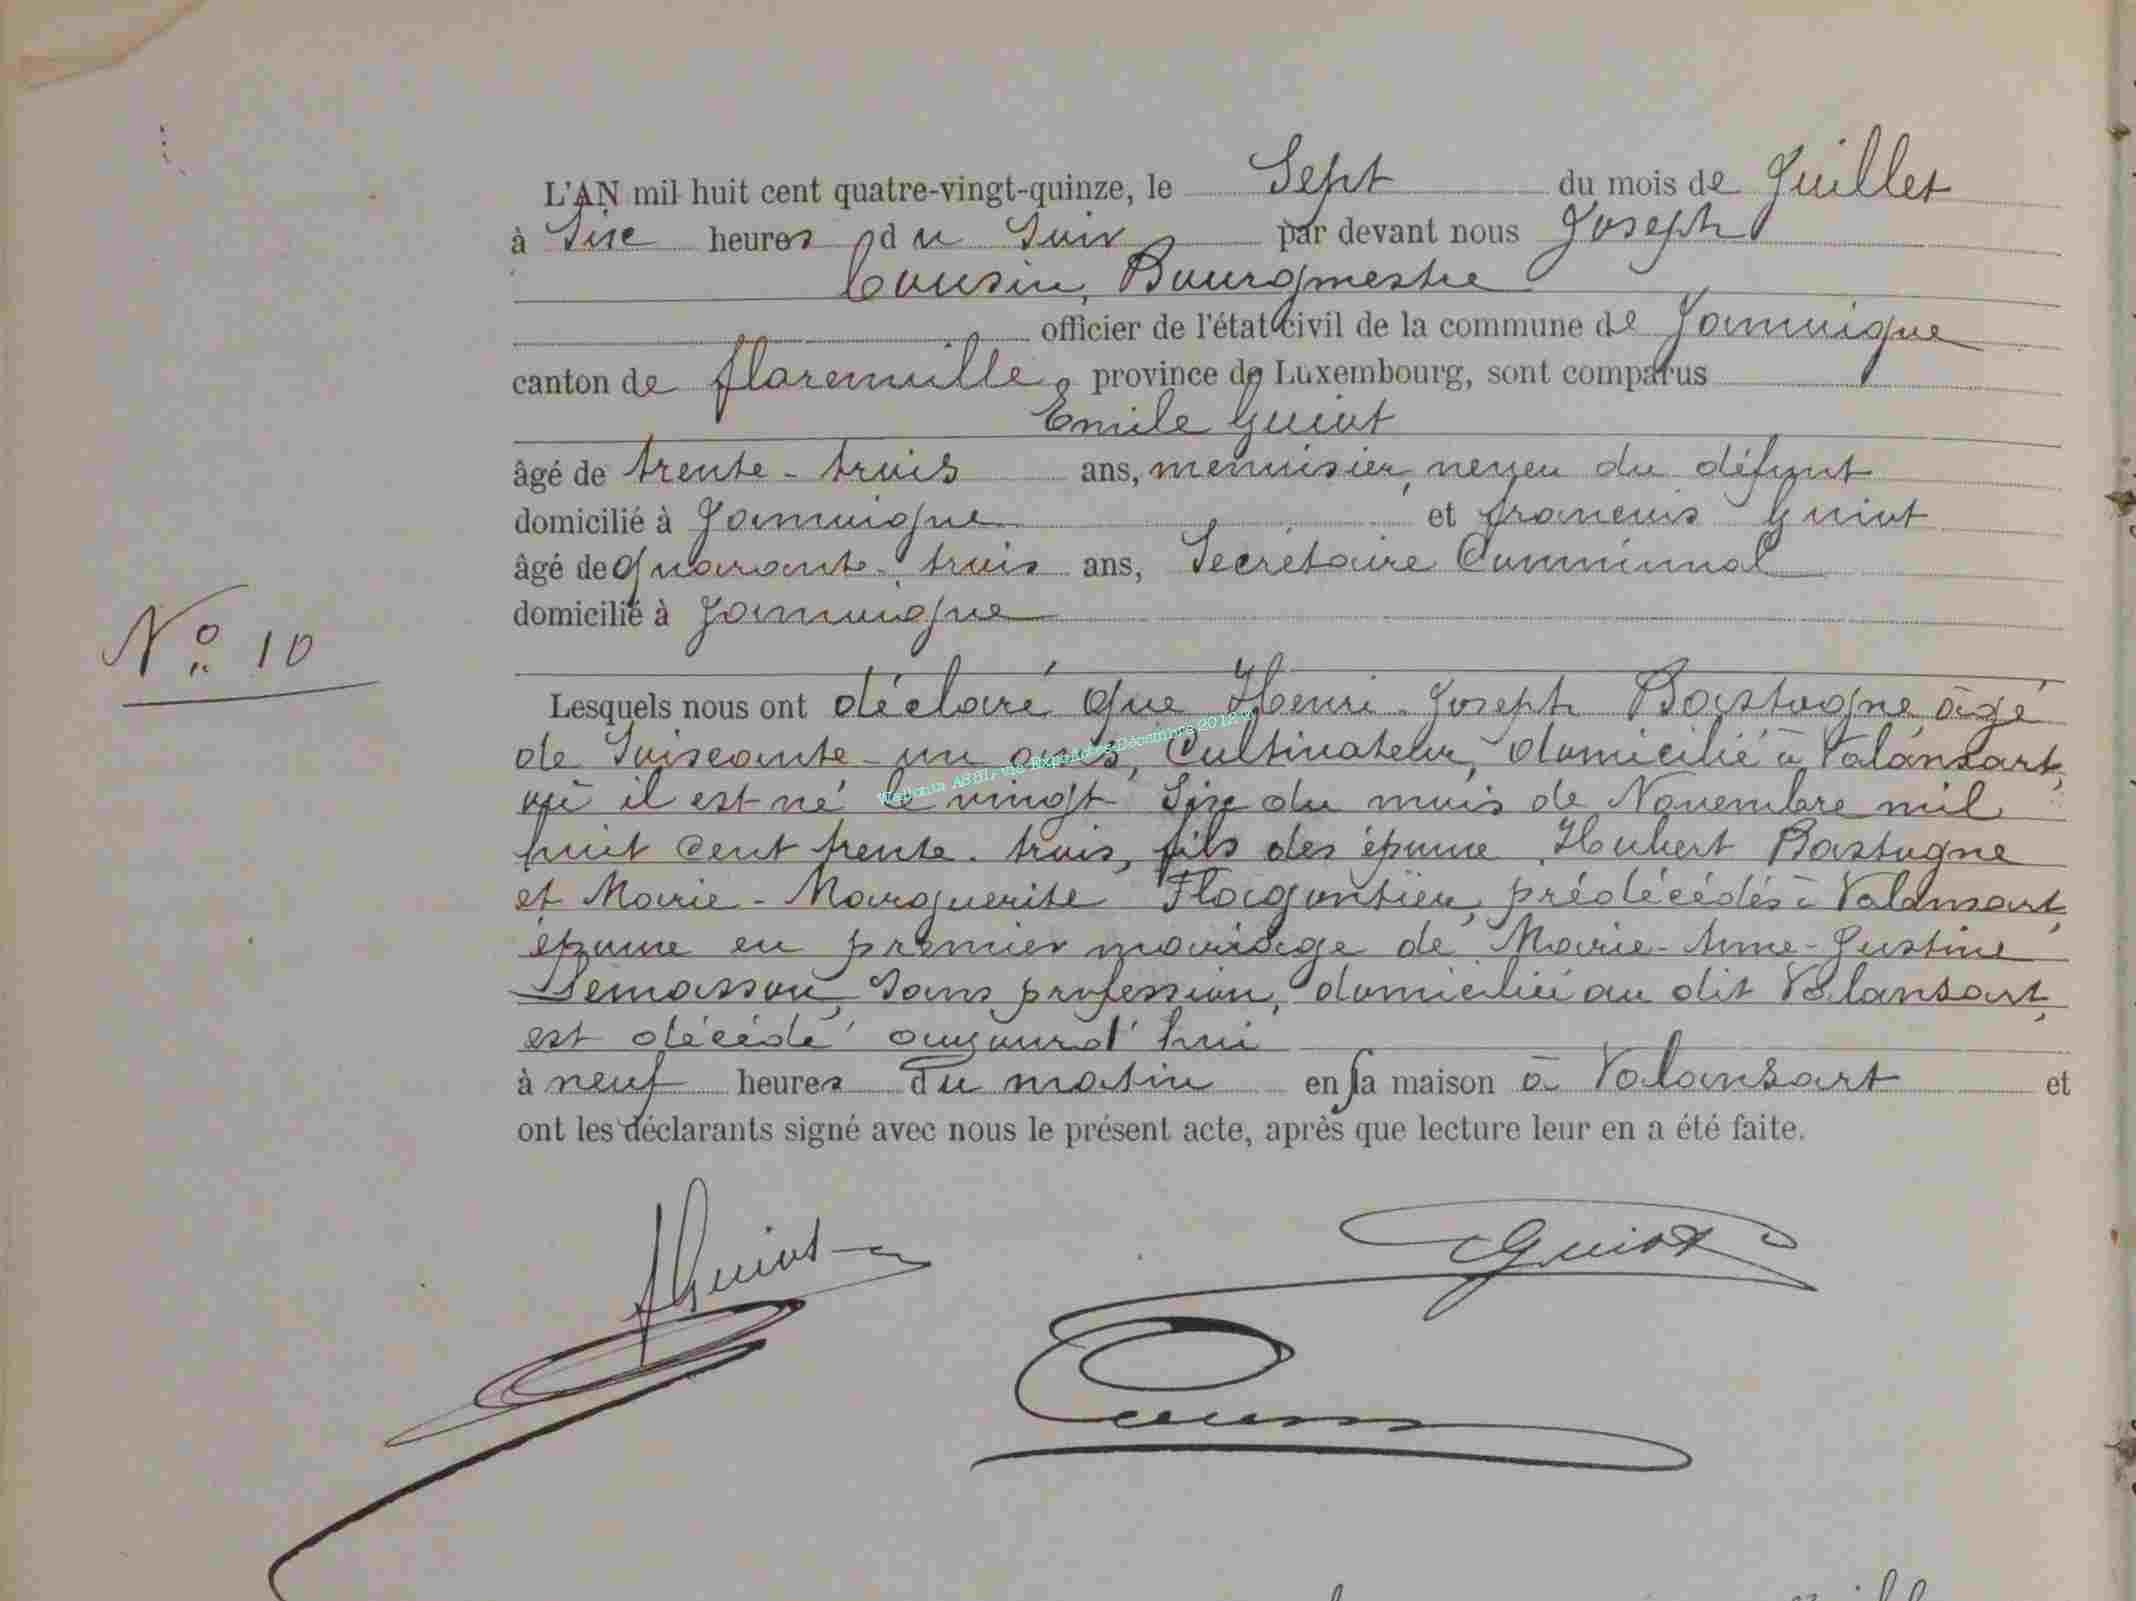 L'AN mil huit cent quatre-vingt-quinze, le Sept du mois de Juillet
à Six heures du Soir par devant nous Joseph
Cousin, Bourgmestre
officier de l'état civil de la commune de Jamoigne
canton de florenville, province de Luxembourg, sont comparus
Emile Guiot
âgé de trente-trois ans, menuisier, neveu du défunt
domicilié à Jamoigne et françois Guiot
âgé de quarante-trois ans, Secrétaire Communal
domicilié à Jamoigne
N° 10
Lesquels nous ont déclaré que Henri-Joseph Bastogne âgé
de Soixante-un ans, Cultivateur, domicilié à Valansart,
où il est né le vingt Six du mois de Novembre mil
huit cent trente-trois, fils des époux Hubert Bastogne
et Marie-Marguerite prédécédés à Valansart,
époux en premier mariage de Marie-Anne-Justine
Demasson, Sans profession, domiciliée au dit Valansart,
est décédé aujourd'hui
à neuf heures du matin en sa maison à Valansart et
ont les déclarants signé avec nous le présent acte, après que lecture leur en a été faite.
fGuiot
EGuiot
Cousin
Wallonia ASBL via Décembre 2012